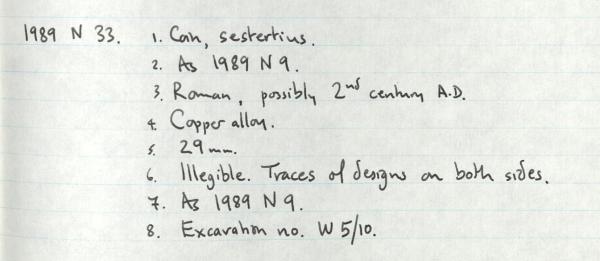 1989 N 33. 1. Coin, sestertius.
2. As 1989 N 9.
3. Roman, possibly 2nd century A.D.
4. Copper alloy.
5. 29 mm.
6. Illegible. Traces of designs on both sides.
7. As 1989 N 9.
8. Excavation no. W 5/10.